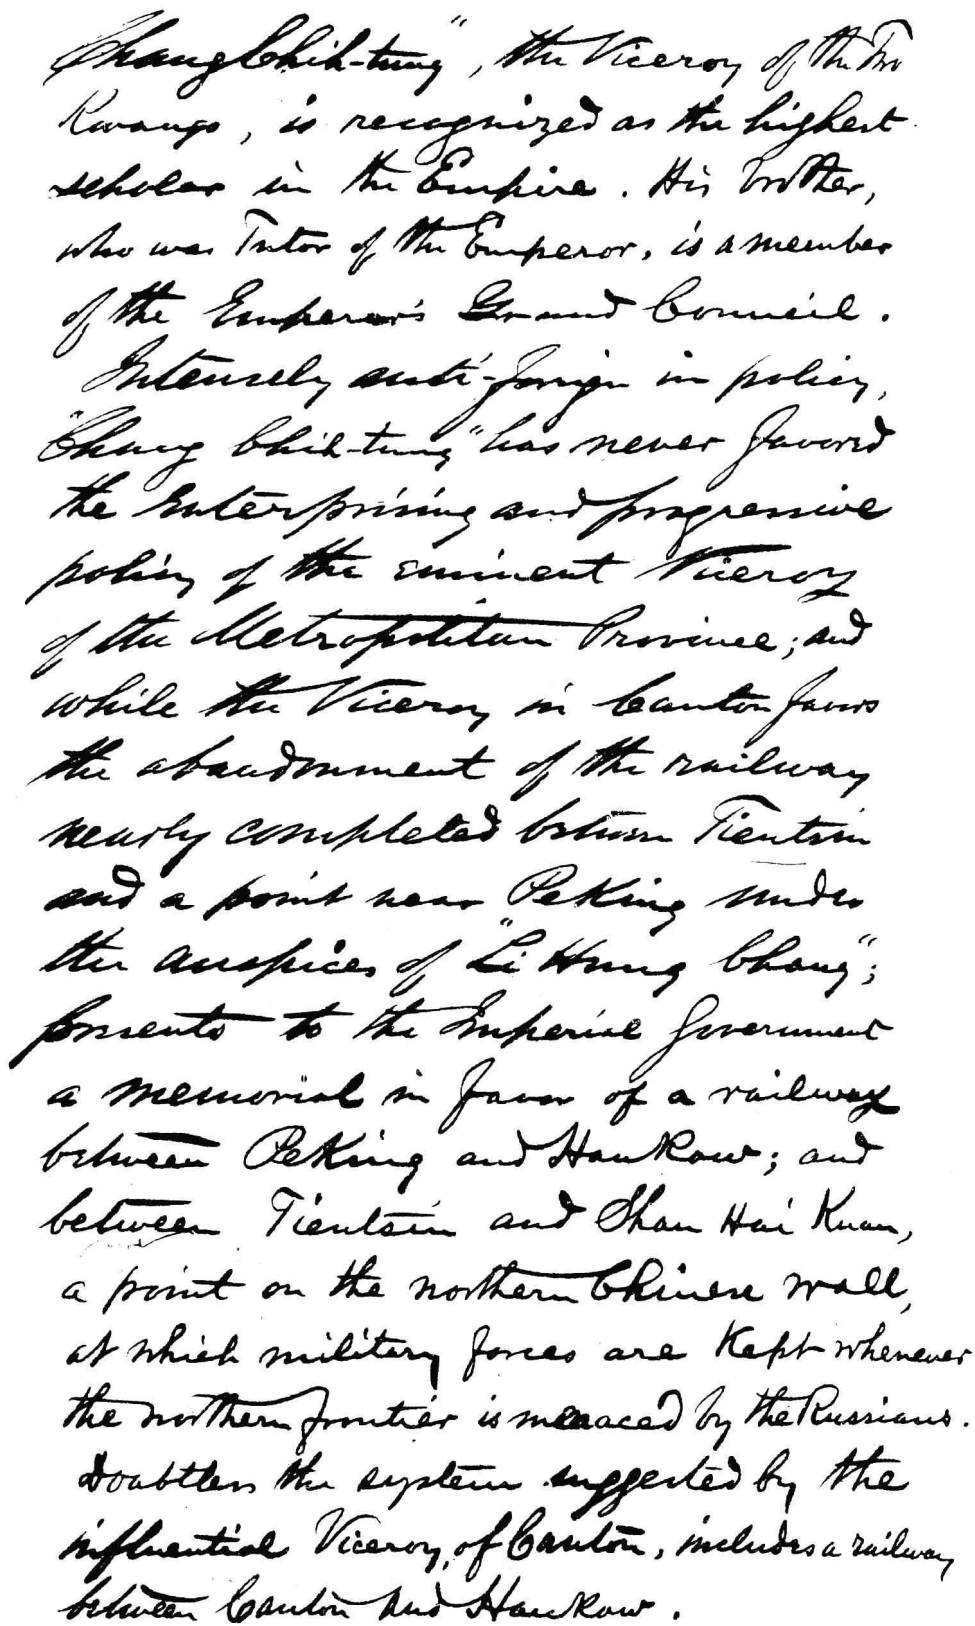 Chang Chih-tung", the Viceroy of the Two
Kwangs, is recognized as the highest
scholar in the Empire. His brother,
who was Tutor of the Emperor, is a member
of the Emperor's Grand Council.
Intensely anti-foreign in policy,
"Chang Chih-tung" has never favored
the enterprising and progressive
policy of the eminent Viceroy
of the Metropolitan Province; and
while the Viceroy in Canton favors
the abandonment of the railway
nearly completed between Tientsin
and a point near Peking under
the auspices of "Li Hung Chang";
presents to the Imperial Government
a memorial in favor of a railway
between Peking and Hankow; and
between Tientsin and Shan Hai Kuan,
a point on the northern Chinese wall,
at which military forces are kept whenever
the northern frontier is menaced by the Russians.
Doubtless the system suggested by the
influential Viceroy, of Canton, includes a railway
between Canton and Hankow.